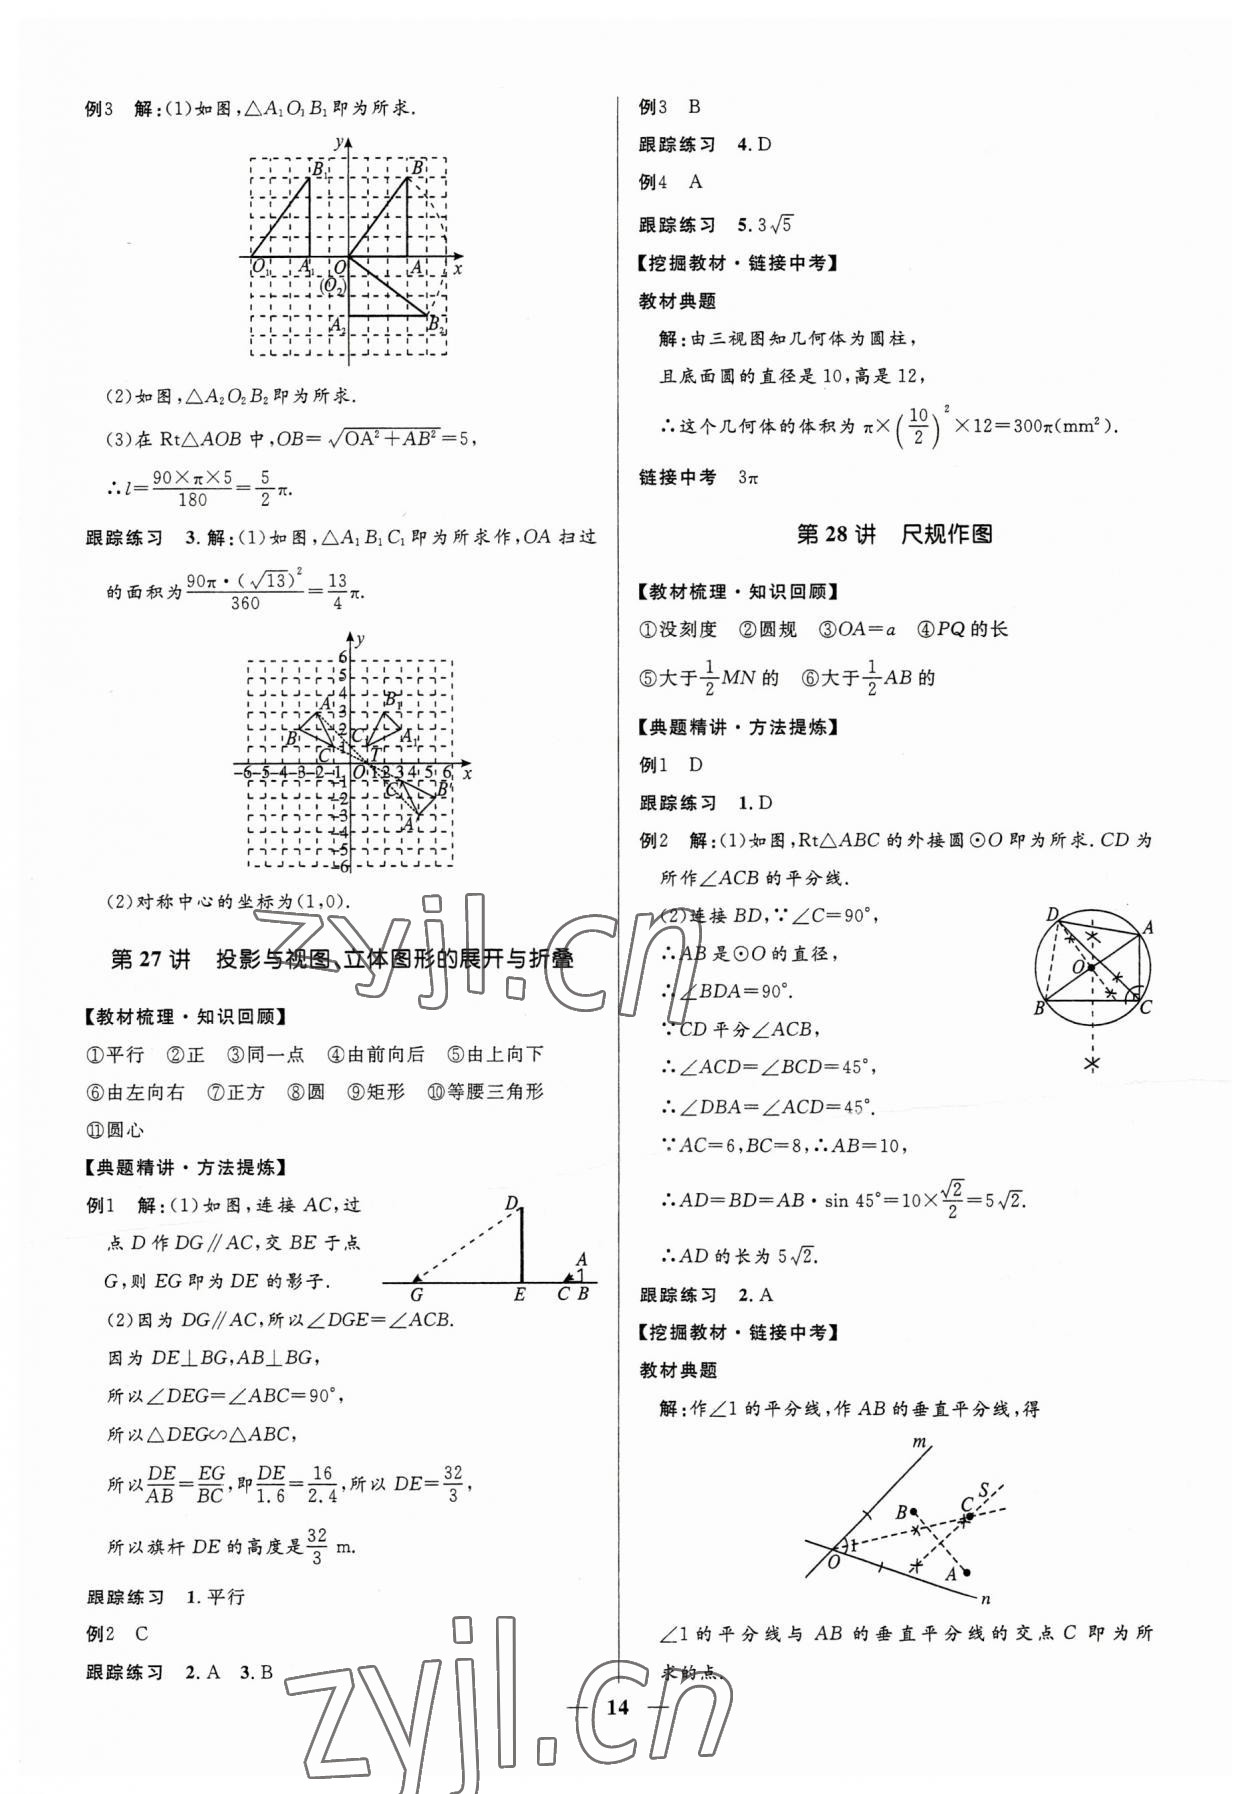 例3 解:(1)如图,△A₁O₁B₁即为所求.
y
B₁ B
O₁ A₁ O A x
(O₂)
A₂ B₂
(2)如图,△A₂O₂B₂即为所求.
(3)在 Rt△AOB 中,OB=√(OA²+AB²)=5,
∴l=(90×π×5)/180=5/2π.
跟踪练习 3.解:(1)如图,△A₁B₁C₁即为所求作,OA 扫过
的面积为(90π·(√13)²)/360=13/4π.
y
6
5
4
3
2
1
A B₁
B C₁ A₁
C T
-6-5-4-3-2-1 O 1 2 3 4 5 6 x
-1
-2
-3
-4
-5
-6
C′ B′
A′
(2)对称中心的坐标为(1,0).
第 27 讲 投影与视图、立体图形的展开与折叠
【教材梳理·知识回顾】
①平行 ②正 ③同一点 ④由前向后 ⑤由上向下
⑥由左向右 ⑦正方 ⑧圆 ⑨矩形 ⑩等腰三角形
⑪圆心
【典题精讲·方法提炼】
例1 解:(1)如图,连接 AC,过
点 D 作 DG∥AC,交 BE 于点
G,则 EG 即为 DE 的影子.
D
A
G E C B
(2)因为 DG∥AC,所以∠DGE=∠ACB.
因为 DE⊥BG,AB⊥BG,
所以∠DEG=∠ABC=90°,
所以△DEG∽△ABC,
所以DE/AB=EG/BC,即DE/1.6=16/2.4,所以 DE=32/3,
所以旗杆 DE 的高度是32/3 m.
跟踪练习 1.平行
例2 C
跟踪练习 2.A 3.B
例3 B
跟踪练习 4.D
例4 A
跟踪练习 5.3√5
【挖掘教材·链接中考】
教材典题
解:由三视图知几何体为圆柱,
且底面圆的直径是 10,高是 12,
∴这个几何体的体积为 π×(10/2)²×12=300π(mm²).
链接中考 3π
第 28 讲 尺规作图
【教材梳理·知识回顾】
①没刻度 ②圆规 ③OA=a ④PQ 的长
⑤大于1/2MN 的 ⑥大于1/2AB 的
【典题精讲·方法提炼】
例1 D
跟踪练习 1.D
例2 解:(1)如图,Rt△ABC 的外接圆⊙O 即为所求.CD 为
所作∠ACB 的平分线.
(2)连接 BD,∵∠C=90°,
∴AB 是⊙O 的直径,
∴∠BDA=90°.
∵CD 平分∠ACB,
∴∠ACD=∠BCD=45°,
∴∠DBA=∠ACD=45°.
∵AC=6,BC=8,∴AB=10,
∴AD=BD=AB·sin 45°=10×√2/2=5√2.
∴AD 的长为 5√2.
D A
O
B C
跟踪练习 2.A
【挖掘教材·链接中考】
教材典题
解:作∠1 的平分线,作 AB 的垂直平分线,得
m
S
B C
O 1
A
n
∠1 的平分线与 AB 的垂直平分线的交点 C 即为所
求的点.
14
zyjl.cn
zyjl.cn